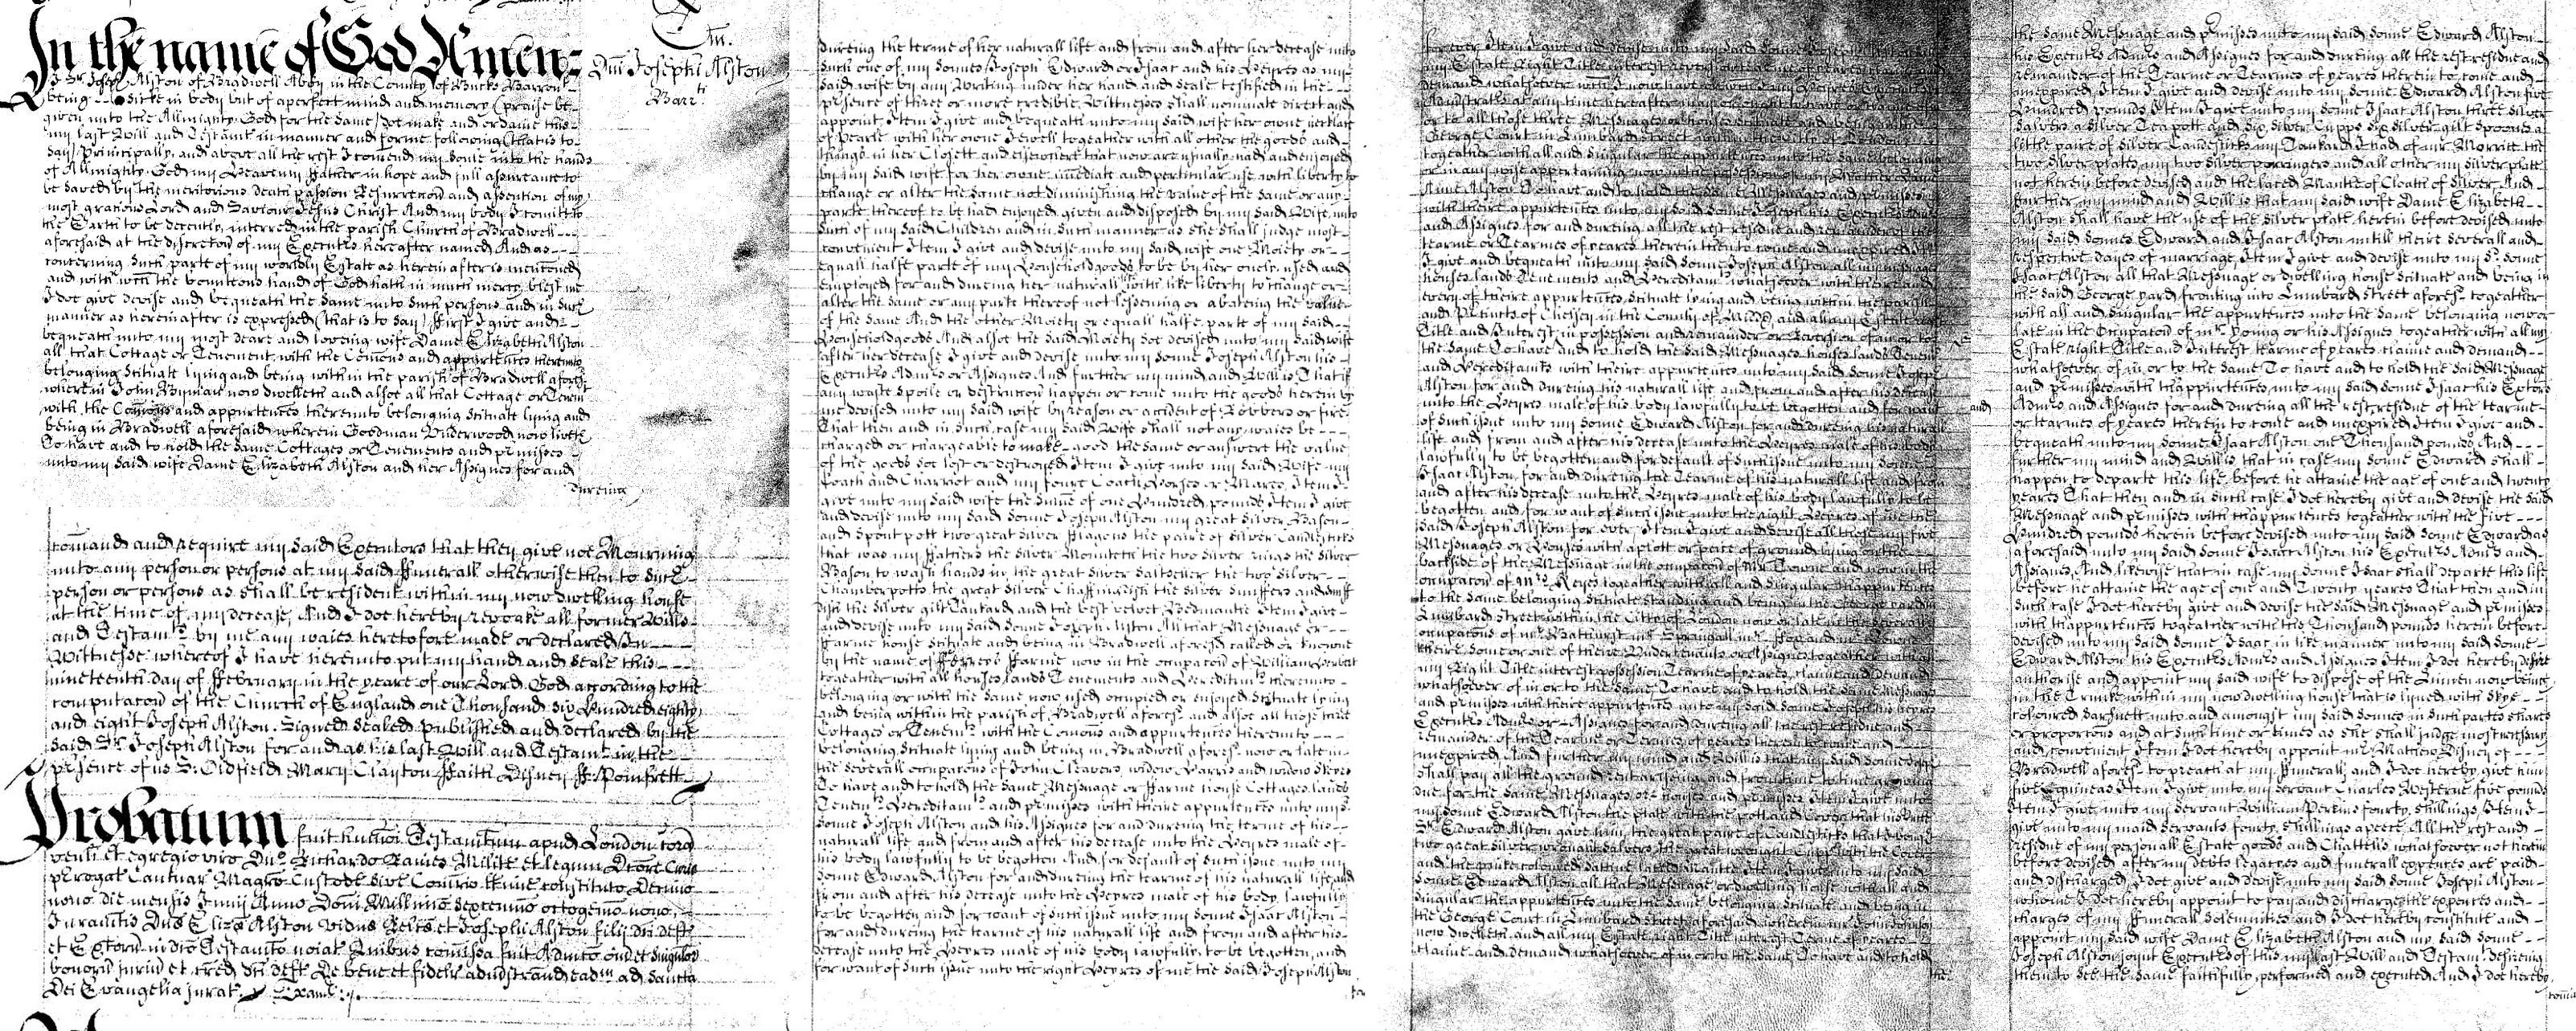 In the name of God Amen
Dni Josephi Alston
Barrti
I Sr. Joseph Alston of Bradwell Abby in the County of Bucks Barront
being sicke in body but of a perfect mind and memory (praise be
given unto the Allmighty God for the same) doe make and ordaine this
my last Will and Testamt in manner and forme following (that is to
say) Principally and above all the rest I comend my soule into the hands
of Allmighty God my Heavenly ffather in hope and full assureance to
be saved by the meritorious death passion Resurrection and assention of my
most gratious Lord and Saviour Jesus Christ And my body I comitt to
the Earth to be decently interred in the parish Church of Bradwell
aforesaid at the discretion of my Executrs hereafter named And as
concerning such parte of my worldly Estate as herein after is mentioned
and with wch the bounteous hand of God hath in much mercy blest me
I doe give devise and bequeath the same unto such persons and in such
manner as hereinafter is expressed (that is to say) ffirst I give and
bequeath unto my most deare and loveing wife Dame Elizabeth Alston
all that Cottage or Tenement with the Comons and appurtences thereunto
belonging Scituate lying and being within the parish of Bradwell aforesd
wherein John now dwelleth and alsoe all that Cottage or Tenemt
with the Comons and appurtences thereunto belonging Scituate lying and
being in Bradwell aforesaid wherein Goodman Underwood now liveth
To have and to hold the same Cottages or Tenements and pr̃misses
unto my said wife Dame Elizabeth Alston and her Assignes for and
dureing
dureing the terme of her naturall life and from and after her decease unto
such one of my sonnes Joseph Edward or Isaac and his Heyres as my
said wife by any Writing under her hand and seale testified in the
presence of three or more credible Wittnesses shall nominate direct and
appoint Item I give and bequeath unto my said wife her owne necklace
of Pearle with her owne Jewell togeather with all other the goods and
things in her Clossett and elsewhere that now are usually had and enjoyed
by my said wife for her owne imediate and perticular use with liberty to
change or alter the same not diminishing the value of the same or any
parte thereof to be had enjoyed given and disposed by my said Wife unto
such of my said Children and in such manner as she shall judge most
convenient Item I give and devise unto my said wife one Moiety or
equall halfe parte of my Householdgoods to be by her onely used and
employed for and dureing her naturall with like liberty to change or
alter the same or any parte thereof not lessening or abateing the value
of the same And the other Moiety or equall halfe parte of my said
Householdgoods And alsoe the said Moiety soe devised unto my said wife
after her decease I give and devise unto my sonne Joseph Alston his
Executrs Admrs or Assignes And further my mind and Will is That if
any waste spoile or destruction happen or come unto the goods herein by
me devised unto my said wife by reason or accident of Robbers or fire
That then and in such case my said Wife shall not any waies be
charged or chargeable to make good the same or answere the value
of the goods soe lost or destroyed Item I give unto my said Wife my
Coach and Charriot and my foure Coach Horses or Mares Item I
give unto my said wife the summe of one Hundred pounds Item I give
and devise unto my said sonne Joseph Alston my great silver Bason
and Spout pott two great silver fflagons the paire of silver Candlesticks
that was my ffathers the silver Monteth the two silver rings the silver
Bason to wash hands in the great silver Saltseller the two silver
Chamberpotts the great silver Chaffingdish the silver snuffers and snuff
dish the silver gilt Tankard and the best velvet Bedmantle Item I give
and devise unto my said sonne Joseph Alston All that Messuage or
ffarme house Scituate and being in Bradwell aforesd called or knowne
by the name of ffarme now in the occupacon of William
togeather with all houses lands Tenements and Hereditamts thereunto
belonging or with the same now used occupied or enjoyed Scituate lying
and being within the parish of Bradwell aforesd and alsoe all those three
Cottages or Tenemts with the Comons and appurtences thereunto
belonging Scituate lying and being in Bradwell aforesd now or late in
the severall occupacons of John Cleavers widow Harris and widow
To have and to hold the same Messuage or ffarme house Cottages lands
Tenemts Hereditamts and pr̃misses with theire appurtences unto my sd
sonne Joseph Alston and his Assignes for and dureing the terme of his
naturall life and from and after his decease unto the Heyres male of
his body lawfully to be begotten And for default of such issue unto my
sonne Edward Alston for and dureing the tearme of his naturall life and
from and after his decease unto the Heyres male of his body lawfully
to be begotten and for want of such issue unto my sonne Isaac Alston
for and dureing the tearme of his naturall life and from and after his
decease unto the Heyres male of his body lawfully to be begotten and
for want of such issue unto the right Heyres of me the said Joseph Alston
for ever Item I give and devise unto my said sonne Joseph
my Estate Right Title interest
demand whatsoever wch I now have
at any time hereafter
or to all those three Messuages or houses scituate and being in the
George Court in Lumbard street
togeather with all and singular the appurtences unto the same belonging
or in any wise appertaining now in the possession of my Mother Dame
Anne Alston To have and to hold the same Messuages and pr̃misses
with theire appurtences unto my said sonne Joseph his Executrs Admrs
and Assignes for and dureing all the rest residue and remainder of the
tearme or Tearmes of yeares therein then to come and unexpired Item
I give and bequeath unto my said sonne Joseph Alston all my Messuages
houses lands Tenements and Hereditamts whatsoever with theire and
every of theire appurtences Scituate lying and being within the parish
and Precincts of Chelsey in the County of Middx and all my Estate right
Title and Interest in possession and remainder or Reversion of in or to
the same To have and to hold the said Messuages houses lands Tenemts
and Hereditamts with theire appurtences unto my said sonne Joseph
Alston for and dureing his naturall life and from and after his decease
unto the Heyres male of his body lawfully to be begotten and for want
of such issue unto my sonne Edward Alston for and dureing his naturall
life and from and after his decease unto the Heyres male of his body
lawfully to be begotten and for default of such issue unto my sonne
Isaac Alston for and dureing the Tearme of his naturall life and from
and after his decease unto the Heyres male of his body lawfully to be
begotten and for want of such issue unto the right Heyres of me the
said Joseph Alston for ever Item I give and devise all those my five
Messuages or Houses with a plott or peice of ground lying on the
backside of the Messuage in the occupacon of Mr and now in the
occupacon of Mrs Keyes togeather with all and singular th'appurtences
to the same belonging Scituate standing and being in the George yard in
Lumbard Street within the Citty of London now or late in the severall
occupacons of Mr Bathurst
theire some or one of theire Undertenants or Assignes togeather with all
my Right Title interest possession Tearme of yeares claime and demand
whatsoever of in or to the same To have and to hold the same Messuages
and pr̃misses with theire appurtences unto my said sonne Joseph his heyres
Executrs Admrs or Assignes for and dureing all the rest residue and
remainder of the Tearme or Tearmes of yeares therein to come and
unexpired And further my mind and Will is that my said sonne Joseph
shall pay all the ground rent ariseing and from time to time growing
due for the same Messuages or houses and pr̃misses Item I give unto
my sonne Edward Alston the plate with the pott and Cover that his Uncle
Sr Edward Alston gave him, the great paire of Candlesticks
two great silver wrought Salvers the great wrought Cupp with the Cover
and the pinke coloured Sattine laced Mantle Item I give unto my said
sonne Edward Alston all that Messuage or dwelling house with all and
singular the appurtences unto the same belonging Scituate and being in
the George Court in Lumbard street aforesaid wherein Mr John Johnson
now dwelleth and all my Estate right Title interest Terme of yeares
claime and demand whatsoever of in or to the same To have and to hold
the
the same Messuage and pr̃misses unto my said sonne Edward Alston
his Executrs Admrs and Assignes for and dureing all the rest residue and
remainder of the Tearme or Tearmes of yeares therein to come and
unexpired Item I give and devise unto my sonne Edward Alston five
Hundred pounds Item I give unto my sonne Isaac Alston three silver
Salvers a silver Tea pott and six silver Cupps six silver gilt spoones a
little paire of silver Candlesticks my Tankard I had of Mr Morrice the
two silver plates my two silver porringers and all other my silver plate
not herein before devised and the laced Mantle of Cloath of silver And
further my mind and Will is that my said wife Dame Elizabeth
Alston shall have the use of the silver plate herein before devised unto
my said sonnes Edward and Isaac Alston untill theire severall and
respective dayes of marriage Item I give and devise unto my sd sonne
Isaac Alston all that Messuage or dwelling house Scituate and being in
the said George yard fronting into Lumbard Street aforesd togeather
with all and singular the appurtences unto the same belonging now or
late in the Occupacon of Mr Young or his Assignes togeather with all my
Estate right Title and Interest tearme of yeares claime and demand
whatsoever of in or to the same To have and to hold the said Messuage
and pr̃misses with th'appurtences unto my said sonne Isaac his Executrs
Admrs and Assignes for and dureing all the rest residue of the tearme
or tearmes of yeares therein to come and unexpired Item I give and
bequeath unto my sonne Isaac Alston one Thousand pounds And
further my mind and Will is, that in case my sonne Edward shall
happen to departe this life before he attaine the age of one and twenty
yeares That then and in such case I doe hereby give and devise the said
Messuage and pr̃misses with th'appurtences togeather with the five
Hundred pounds herein before devised unto my said sonne Edward as
aforesaid unto my said sonne Isaac Alston his Executrs Admrs and
Assignes And likewise that in case my sonne Isaac shall departe this life
before he attaine the age of one and Twenty yeares That then and in
such case I doe hereby give and devise the said Messuage and pr̃misses
with th'appurtences togeather with the Thousand pounds herein before
devised unto my said sonne Isaac in like manner unto my said sonne
Edward Alston his Executrs Admrs and Assignes Item I doe hereby desire
authorise and appoint my said wife to dispose of the Linnen now being
in the Trunke within my now dwelling house that is lyned with Skye
coloured Sarsnett unto and amongst my said sonnes in such partes shares
or proporcons and at such time or times as she shall judge most necessary
and convenient Item I doe hereby appoint Mr Mathew Disney of
Bradwell aforesd to preach at my ffunerall, and I doe hereby give him
five Guineas Item I give unto my servant Charles Westerne five pounds
Item I give unto my servant William Perkins fourty shillings Item I
give unto my maid servants fourty shillings apeece All the rest and
residue of my personall Estate goods and Chattells whatsoever not herein
before devised after my debts legacyes and funerall expences are paid
and discharged I doe give and devise unto my said sonne Joseph Alston
whome I doe hereby appoint to pay and discharge the expences and
charges of my ffunerall Solemnities and I doe hereby constitute and
appoint my said wife Dame Elizabeth Alston and my said sonne
Joseph Alston joint Executrs of this my last Will and Testamt desireing
them to see the same faithfully performed and executed And I doe hereby
comand and require my said Executors that they give noe Mourning
unto any person or persons at my said ffunerall otherwise then to such
person or persons as shall be resident within my now dwelling house
at the time of my decease, And I doe hereby revoake all former Wills
and Testamts by me any waies heretofore made or declared In
Wittnesse whereof I have hereunto put my hand and seale this
nineteenth day of ffebruary in the yeare of our Lord God according to the
computacon of the Church of England one Thousand six Hundred eighty
and eight Joseph Alston. Signed sealed published and declared by the
said Sr Joseph Alston for and as his last Will and Testamt in the
presence of us S: Oldfield Mary Clayton ffaith Disney ff: Pomfrett
Probatum fuit hujusmoi Testamentum apud London coram
venli et egregio viro Dno Richardo Raines Milite et legum Dcore Curiæ
prerogat Cantuar Magro Custode sive Comrio ltime constituto Decimo
nono die mensis Junij Anno Dom̃i Millimo sexcenmo octogemo nono,
Juramtis Dnæ Elizæ Alston Viduæ Relctæ et Josephi Alston filij dci defti
et Extorum in dco Testamto noiat Quibus comissa fuit Admco oim et singulor
bonorum jurium et cred dci defti De bene et fideliter admistrand eadem ad sancta
Dei Evangelia jurat. Examr